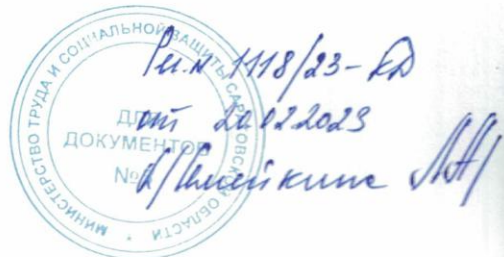 МИНИСТЕРСТВО ТРУДА И СОЦИАЛЬНОЙ ЗАЩИТЫ САРАТОВСКОЙ ОБЛАСТИ *
ДЛЯ
ДОКУМЕНТОВ
№
Рег.№ 1118/23-КД
от 20.02.2023